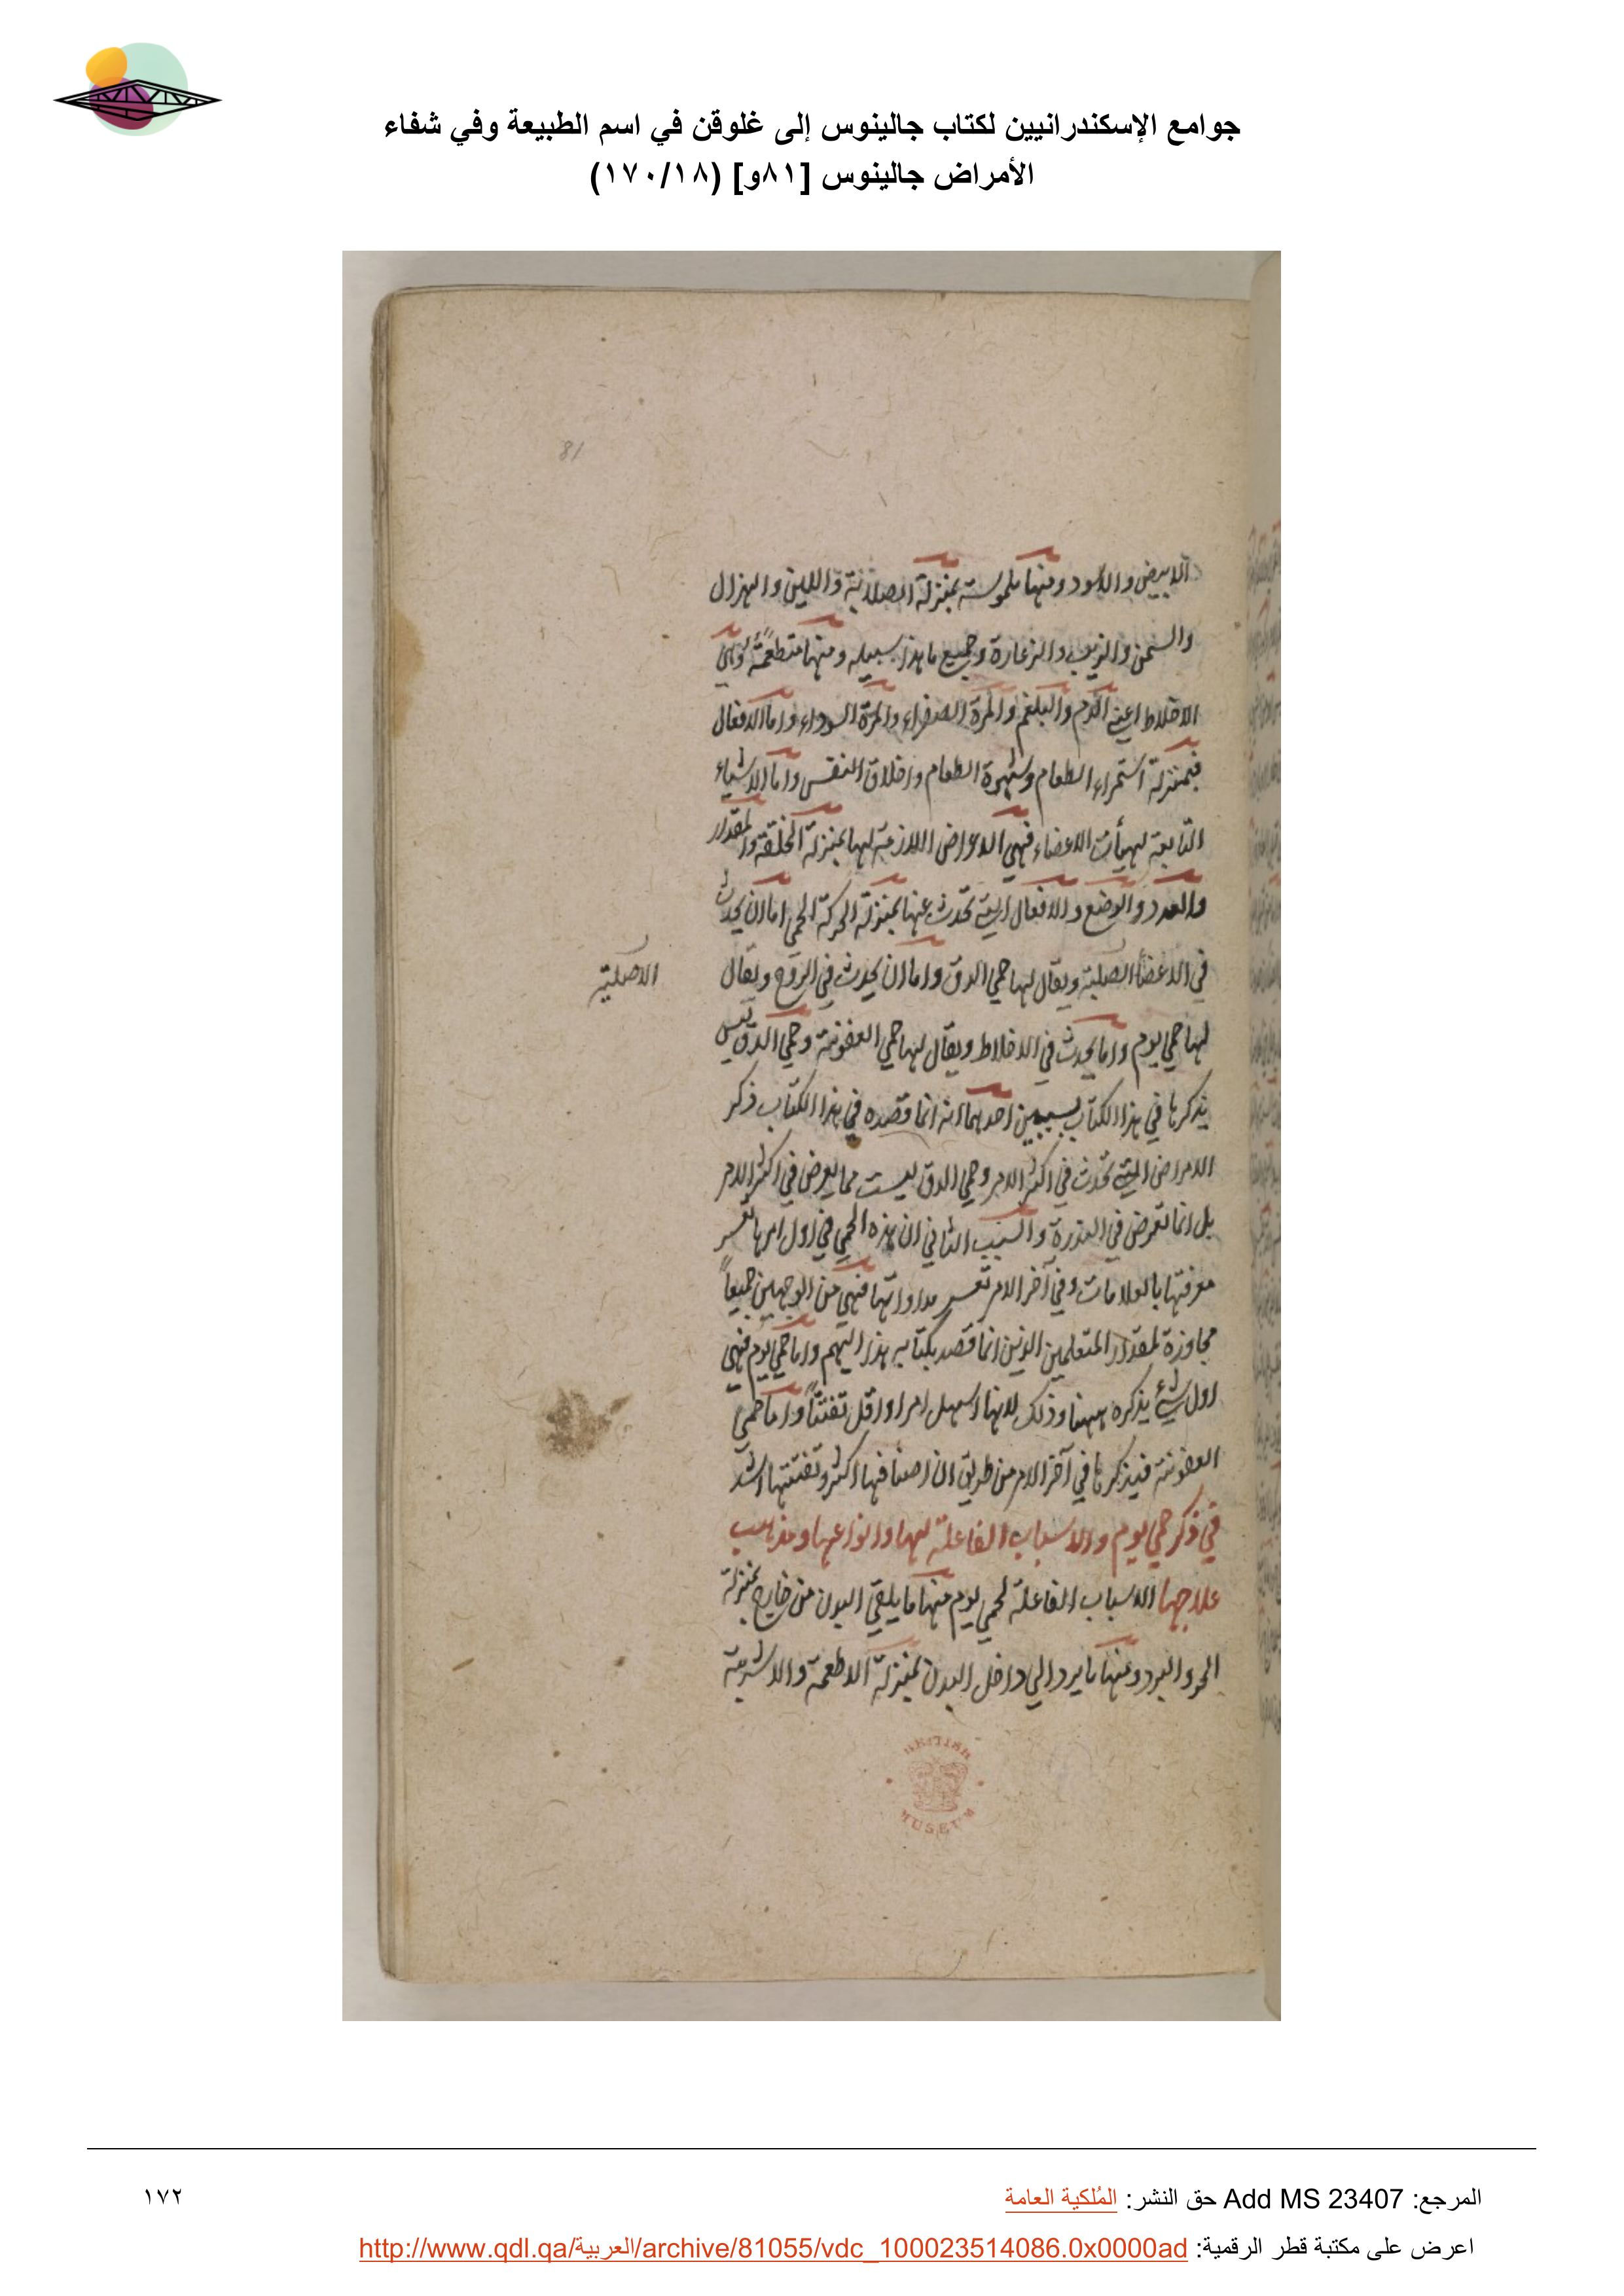 جوامع الإسكندرانيين لكتاب جالينوس إلى غلوقن في اسم الطبيعة وفي شفاء
الأمراض جالينوس [٨١و] (١٧٠/١٨)
81
الابيض والاسود ومنها ملموسة بمنزلة الصلابة واللين والهزال
والسمن والزبب والزعارة وجميع ما هذا سبيله ومنها متطعمة وهي
الاخلاط اعني الدم والبلغم والمرة الصفراء والمرة السوداء واما الافعال
فبمنزلة استمراء الطعام وشهوة الطعام واخلاق النفس واما الاشياء
التابعة لهيأت الاعضاء فهي الاعراض اللازمة لها بمنزلة الخلقة والمقدار
والعدد والوضع والافعال التي تحدث عنها بمنزلة الحركة الحمى اما ان يحدث
في الاعضأ الصلبة ويقال لها حمي الدق واما ان يحدث في الروح ويقال
الاصلية
لها حمي يوم واما يحدث في الاخلاط ويقال لها حمي العفونة وحمي الدق ليس
يذكرها في هذا الكتاب لسببين احدهما انه انما قصده في هذا الكتاب ذكر
الامراض التي تحدث في اكثر الامر وحمي الدق ليست مما يعرض في اكثر الامر
بل انما تعرض في الندرة والسبب الثاني ان هذه الحمي في اول امرها تعسر
معرفتها بالعلامات وفي آخر الامر تعسر مداواتها فهي من الوجهين جميعاً
مجاوزة لمقدار المتعلمين الذين انما قصد بكتابه هذا اليهم واما حمي يوم فهي
اول شيء يذكره ههنا وذلك لانها اسهل امرا واقل تفنناً واما حمي
العفونة فيذكرها في آخر الامر من طريق ان اصنافها اكثر وتفننها اشد
في ذكر حمي يوم والاسباب الفاعلة لها وانواعها ومذاهب
علاجها الاسباب الفاعلة لحمي يوم منها ما يلقي البدن من خارج بمنزلة
الحر والبرد ومنها ما يرد الي داخل البدن بمنزلة الاطعمة والاشربة
BRITISH
MUSEUM
المرجع: Add MS 23407 حق النشر: المُلكية العامة
١٧٢
اعرض على مكتبة قطر الرقمية: http://www.qdl.qa/العربية/archive/81055/vdc_100023514086.0x0000ad